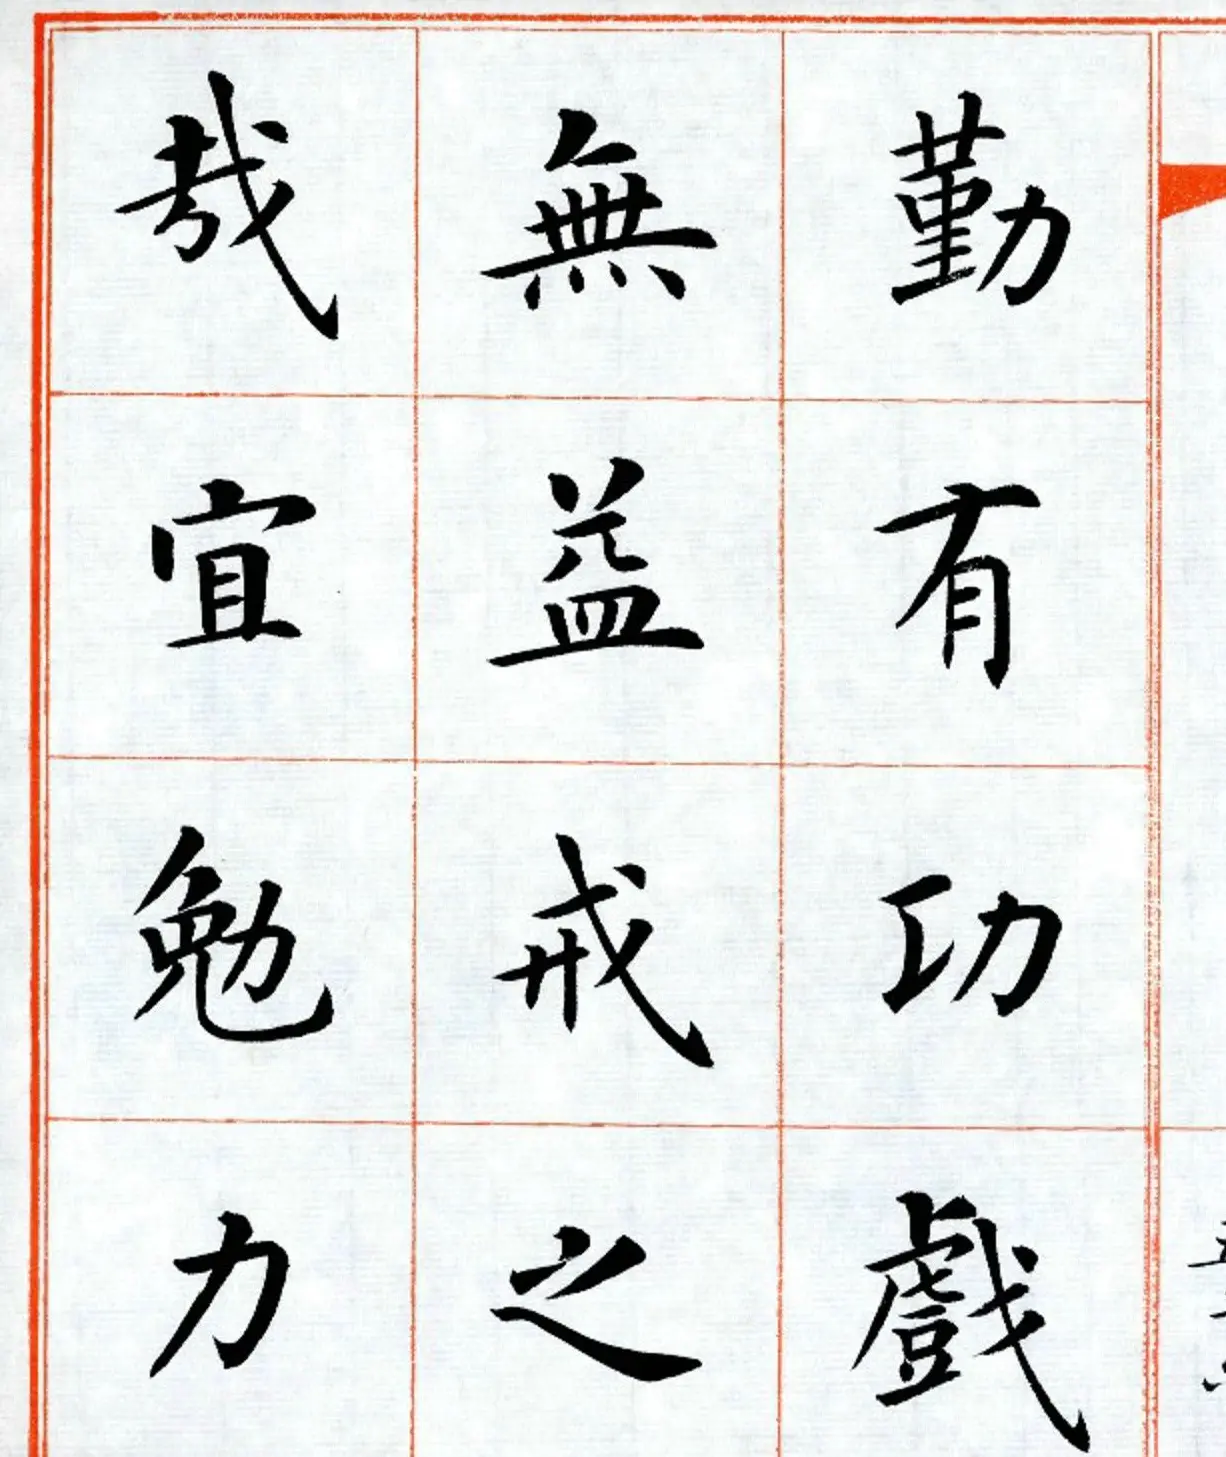 勤有功戲
無益戒之
哉宜勉力